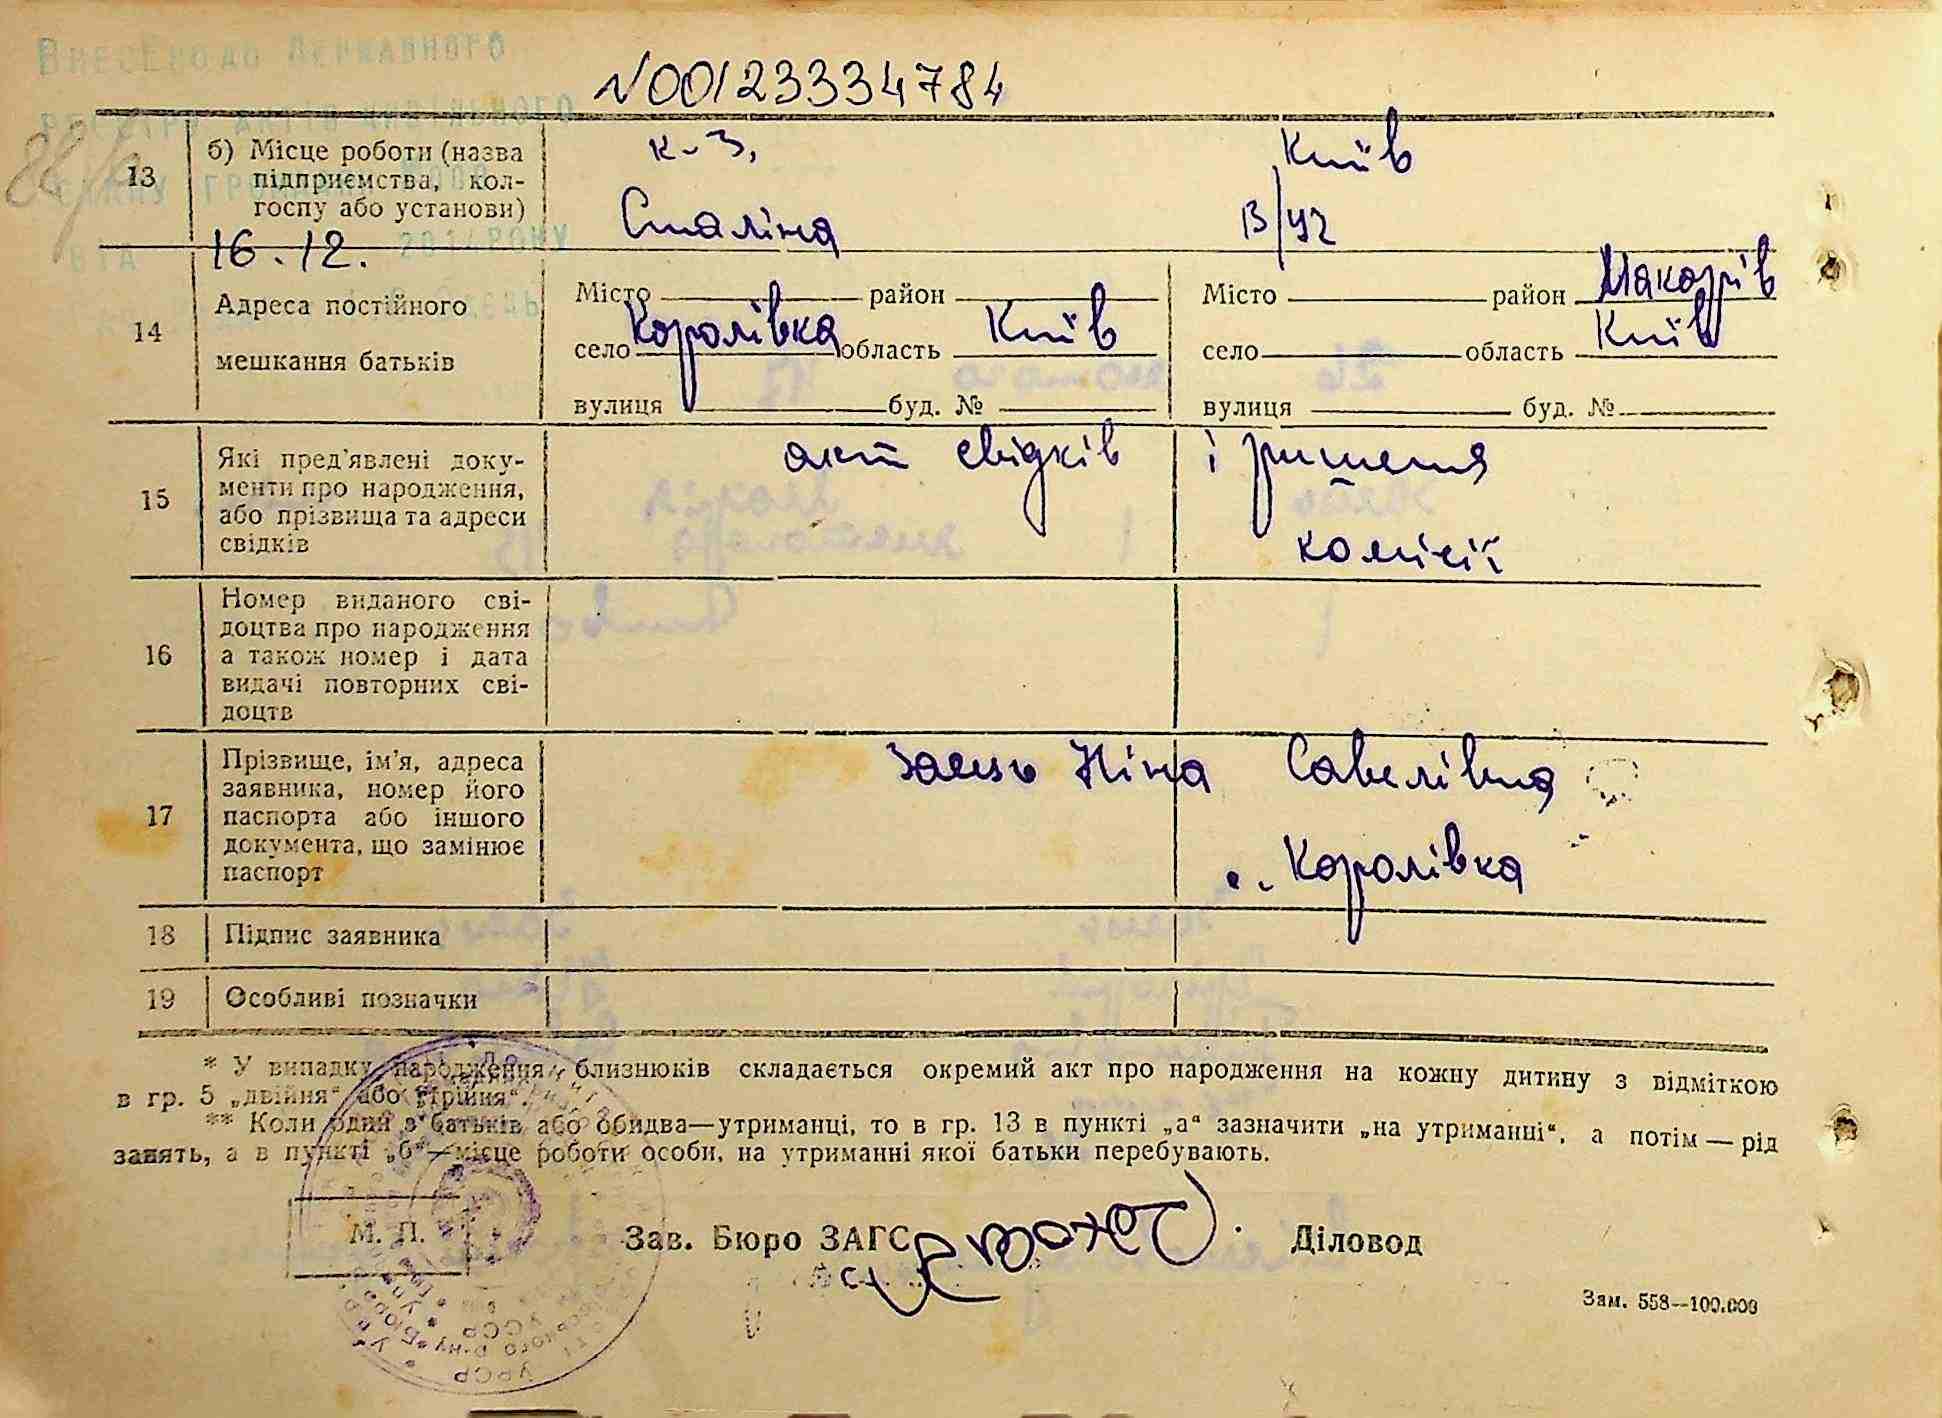 Внесено до Державного
N00123334784
реєстру актів цивільного
13 б) Місце роботи (назва підприємства, колгоспу або установи)
к-з, Сталіна
Київ в/уч
стану громадян
від 16.12. 2014 року
14 Адреса постійного мешкання батьків
Місто район
село Королівка область Київ
вулиця буд. №
Місто район Макарів
село область Київ
вулиця буд. №
15 Які пред'явлені доку-
менти про народження,
або прізвища та адреси
свідків
акт свідків і рішення
комісії
16 Номер виданого сві-
доцтва про народження
а також номер і дата
видачі повторних сві-
доцтв
17 Прізвище, ім'я, адреса
заявника, номер його
паспорта або іншого
документа, що замінює
паспорт
Заєць Ніна Савелівна
с. Королівка
18 Підпис заявника
19 Особливі позначки
* У випадку народження близнюків складається окремий акт про народження на кожну дитину з відміткою
в гр. 5 „двійня“ або „трійня“.
** Коли один з батьків або обидва—утриманці, то в гр. 13 в пункті „а“ зазначити „на утриманні“, а потім — рід
занять, а в пункті „б“—місце роботи особи, на утриманні якої батьки перебувають.
М. П.
Зав. Бюро ЗАГС
Діловод
Зам. 558—100.000